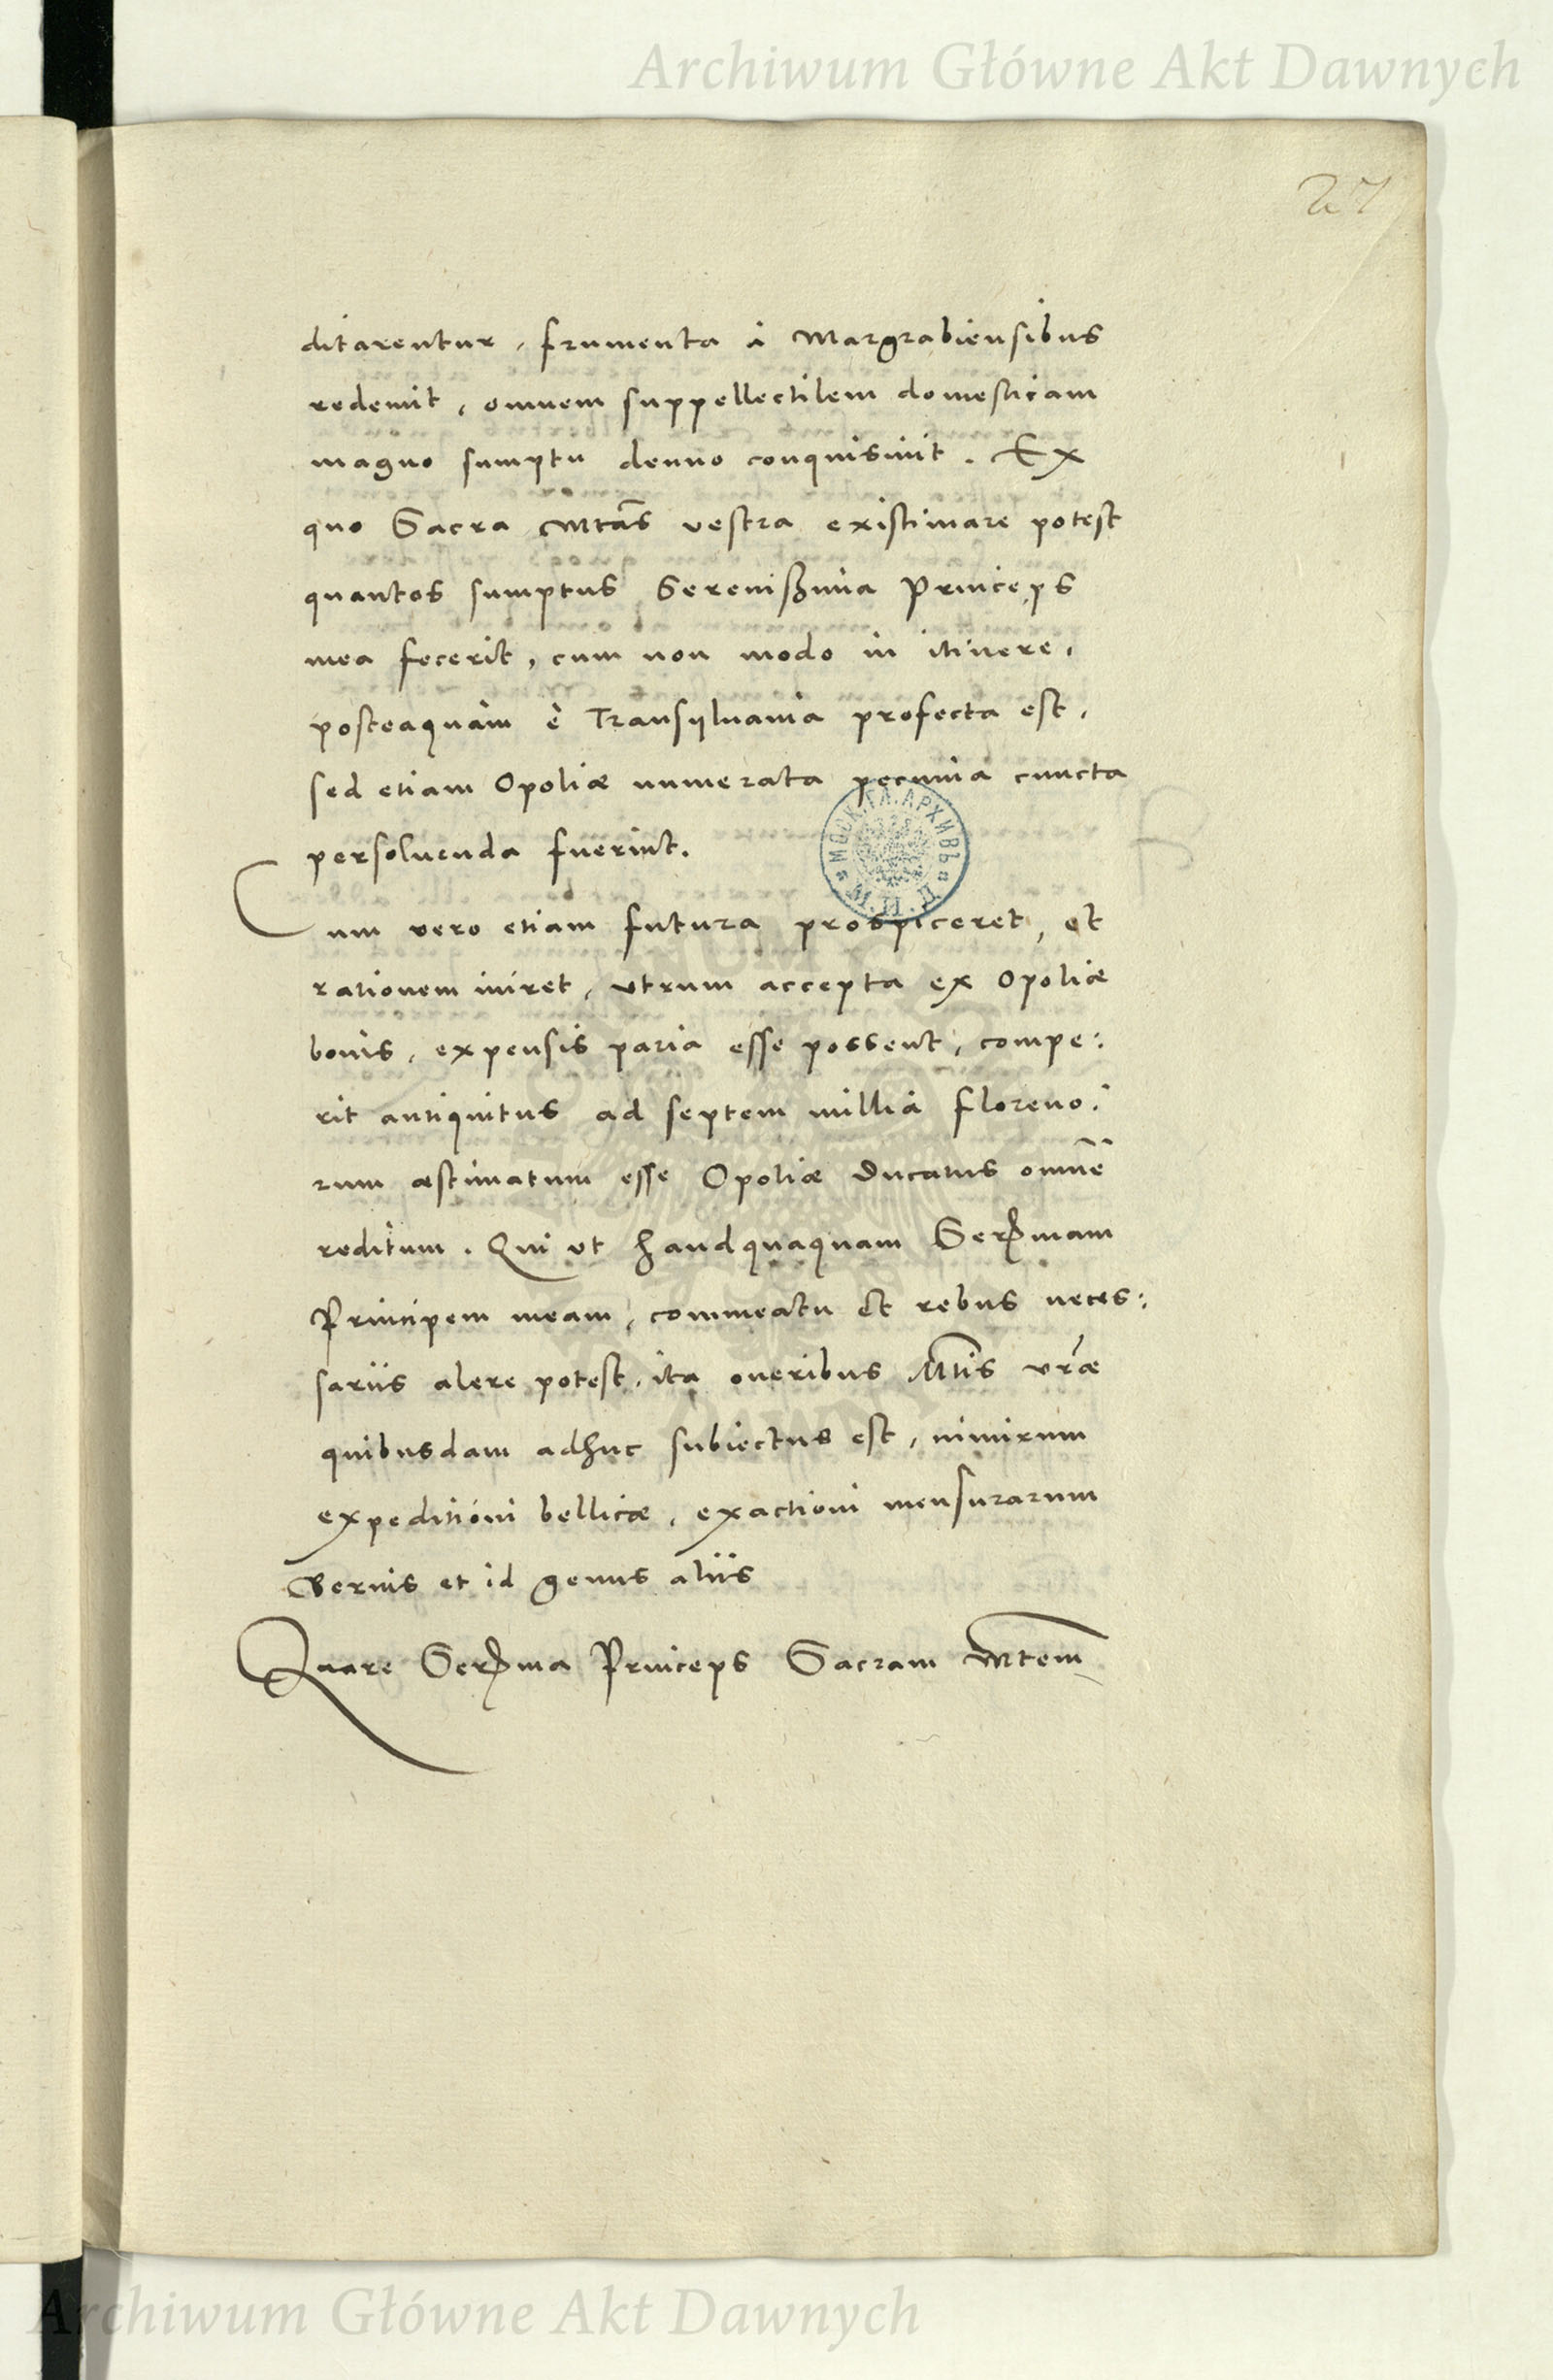 Archiwum Główne Akt Dawnych
27
ditarentur, frumenta à Margrabiensibus
redemit, omnem suppellectilem domesticam
magno sumptu denuo conquisiuit. Ex
quo Sacra Mtas vestra existimare potest
quantos sumptus Sereniẞima Princeps
mea fecerit, cum non modo in itinere,
posteaquàm è Transyluania profecta est,
sed etiam Opoliæ numerata pecunia cuncta
persoluenda fuerint.
Cum vero etiam futura prospiceret, et
rationem iniret, vtrum accepta ex Opoliæ
bonis, expensis paria esse possent, compe:
rit antiquitus ad septem millia floreno:
rum æstimatum esse Opoliæ Ducatus omnẽ
reditum. Qui vt haudquaquam Serꝑmam
Principem meam, commeatu et rebus neces:
sariis alere potest, ita oneribus Mtis vræ
quibusdam adhuc subiectus est, nimirum
expeditióni bellicæ, exactioni mensurarum
Ceruis et id genus aliis
Quare Serma Princeps Sacram Mtem
МОСК. ГЛ. АРХИВЪ
М. И. Д.
Archiwum Główne Akt Dawnych